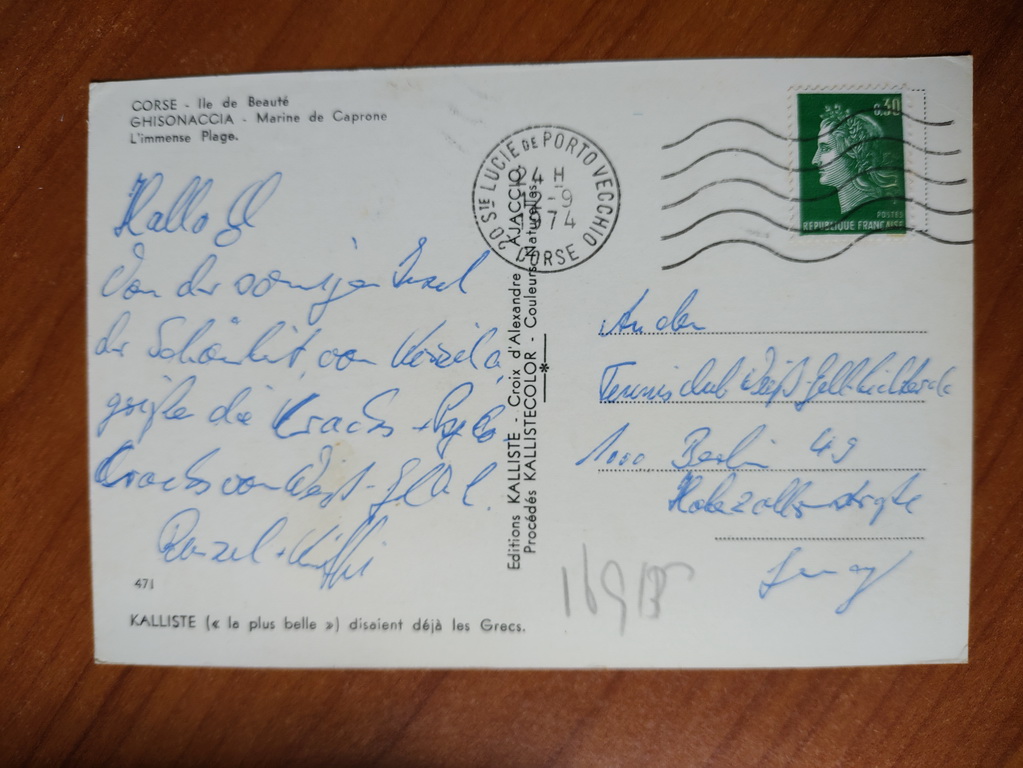 CORSE - Ile de Beauté
GHISONACCIA - Marine de Caprone
L'immense Plage.
20 STE LUCIE DE PORTO VECCHIO
24 H
-9
1974
CORSE
0,30
POSTES
REPUBLIQUE FRANÇAISE
Hallo
Von der sonnigen Insel
der Schönheit, von
grüßen die Cracks
Cracks von Weiß-Gelb
471
KALLISTE (« la plus belle ») disaient déjà les Grecs.
Editions KALLISTE - Croix d'Alexandre - AJACCIO
Procédés KALLISTECOLOR - Couleurs Naturelles
An den
Tennisclub Weiß-Gelb Lichtenrade
1000 Berlin 49